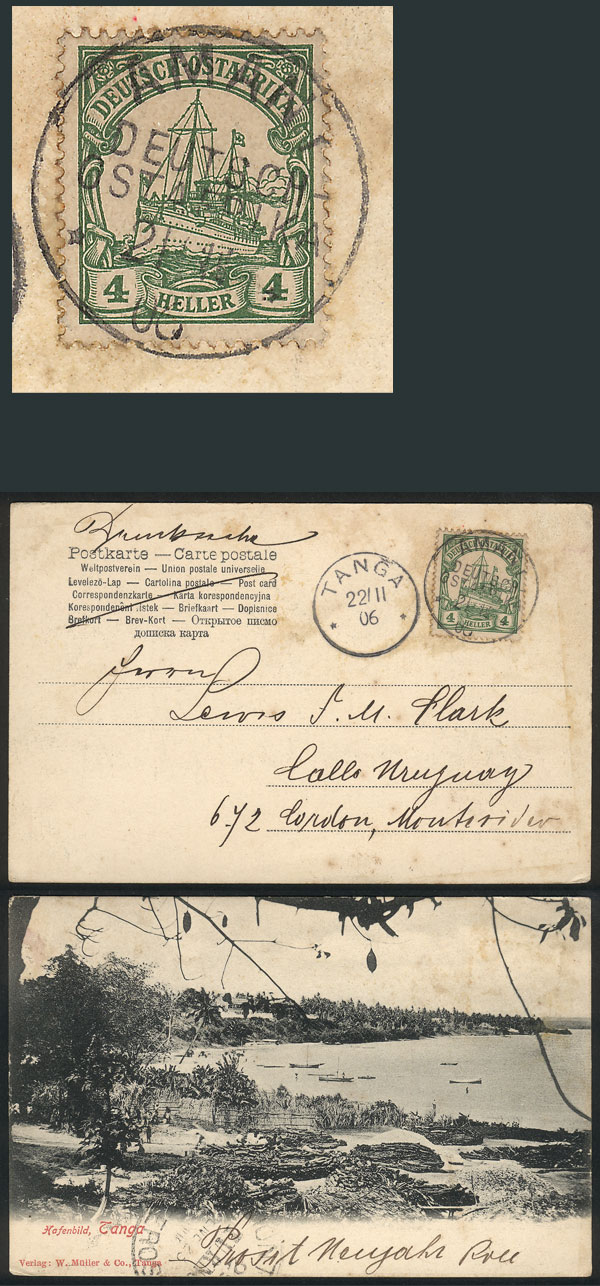 AMANI
DEUTSCH-OSTAFRIKA
DEUTSCH-
OSTAFRIKA
21/11
06
4 HELLER 4
Drucksache
Postkarte — Carte postale
Weltpostverein — Union postale universelle
Levelező-Lap — Cartolina postale — Post card
Correspondenzkarte — Karta korespondencyjna
Korespondenční lístek — Briefkaart — Dopisnice
Brefkort — Brev-Kort — Открытое письмо
дописна карта
TANGA
22/11
06
DEUTSCH-OSTAFRIKA
4 HELLER 4
Herrn
Lewis J. M. Clark
Calle Uruguay
672 Cordon, Montevideo
Hafenbild, Tanga
Prosit Neujahr
Verlag: W. Müller & Co., Tanga